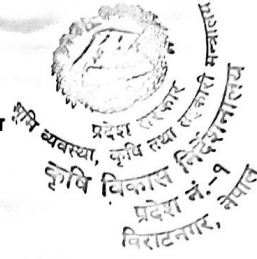 प्रदेश सरकार
भूमि व्यवस्था, कृषि तथा सहकारी मन्त्रालय
कृषि विकास निर्देशनालय
प्रदेश नं.-१
विराटनगर, नेपाल